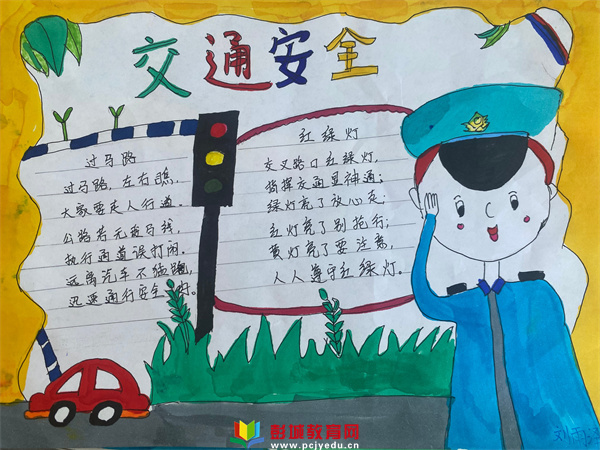 交通安全
过马路
过马路，左右瞧，
大家要走人行道，
公路若无斑马线，
执行两道误打闹。
远离汽车不猛跑，
迅速通行安全
红绿灯
交叉路口红绿灯，
指挥交通显神通；
绿灯亮了放心走；
红灯亮了别抢行；
黄灯亮了要注意，
人人遵守红绿灯。
彭城教育网
www.pcjyedu.cn